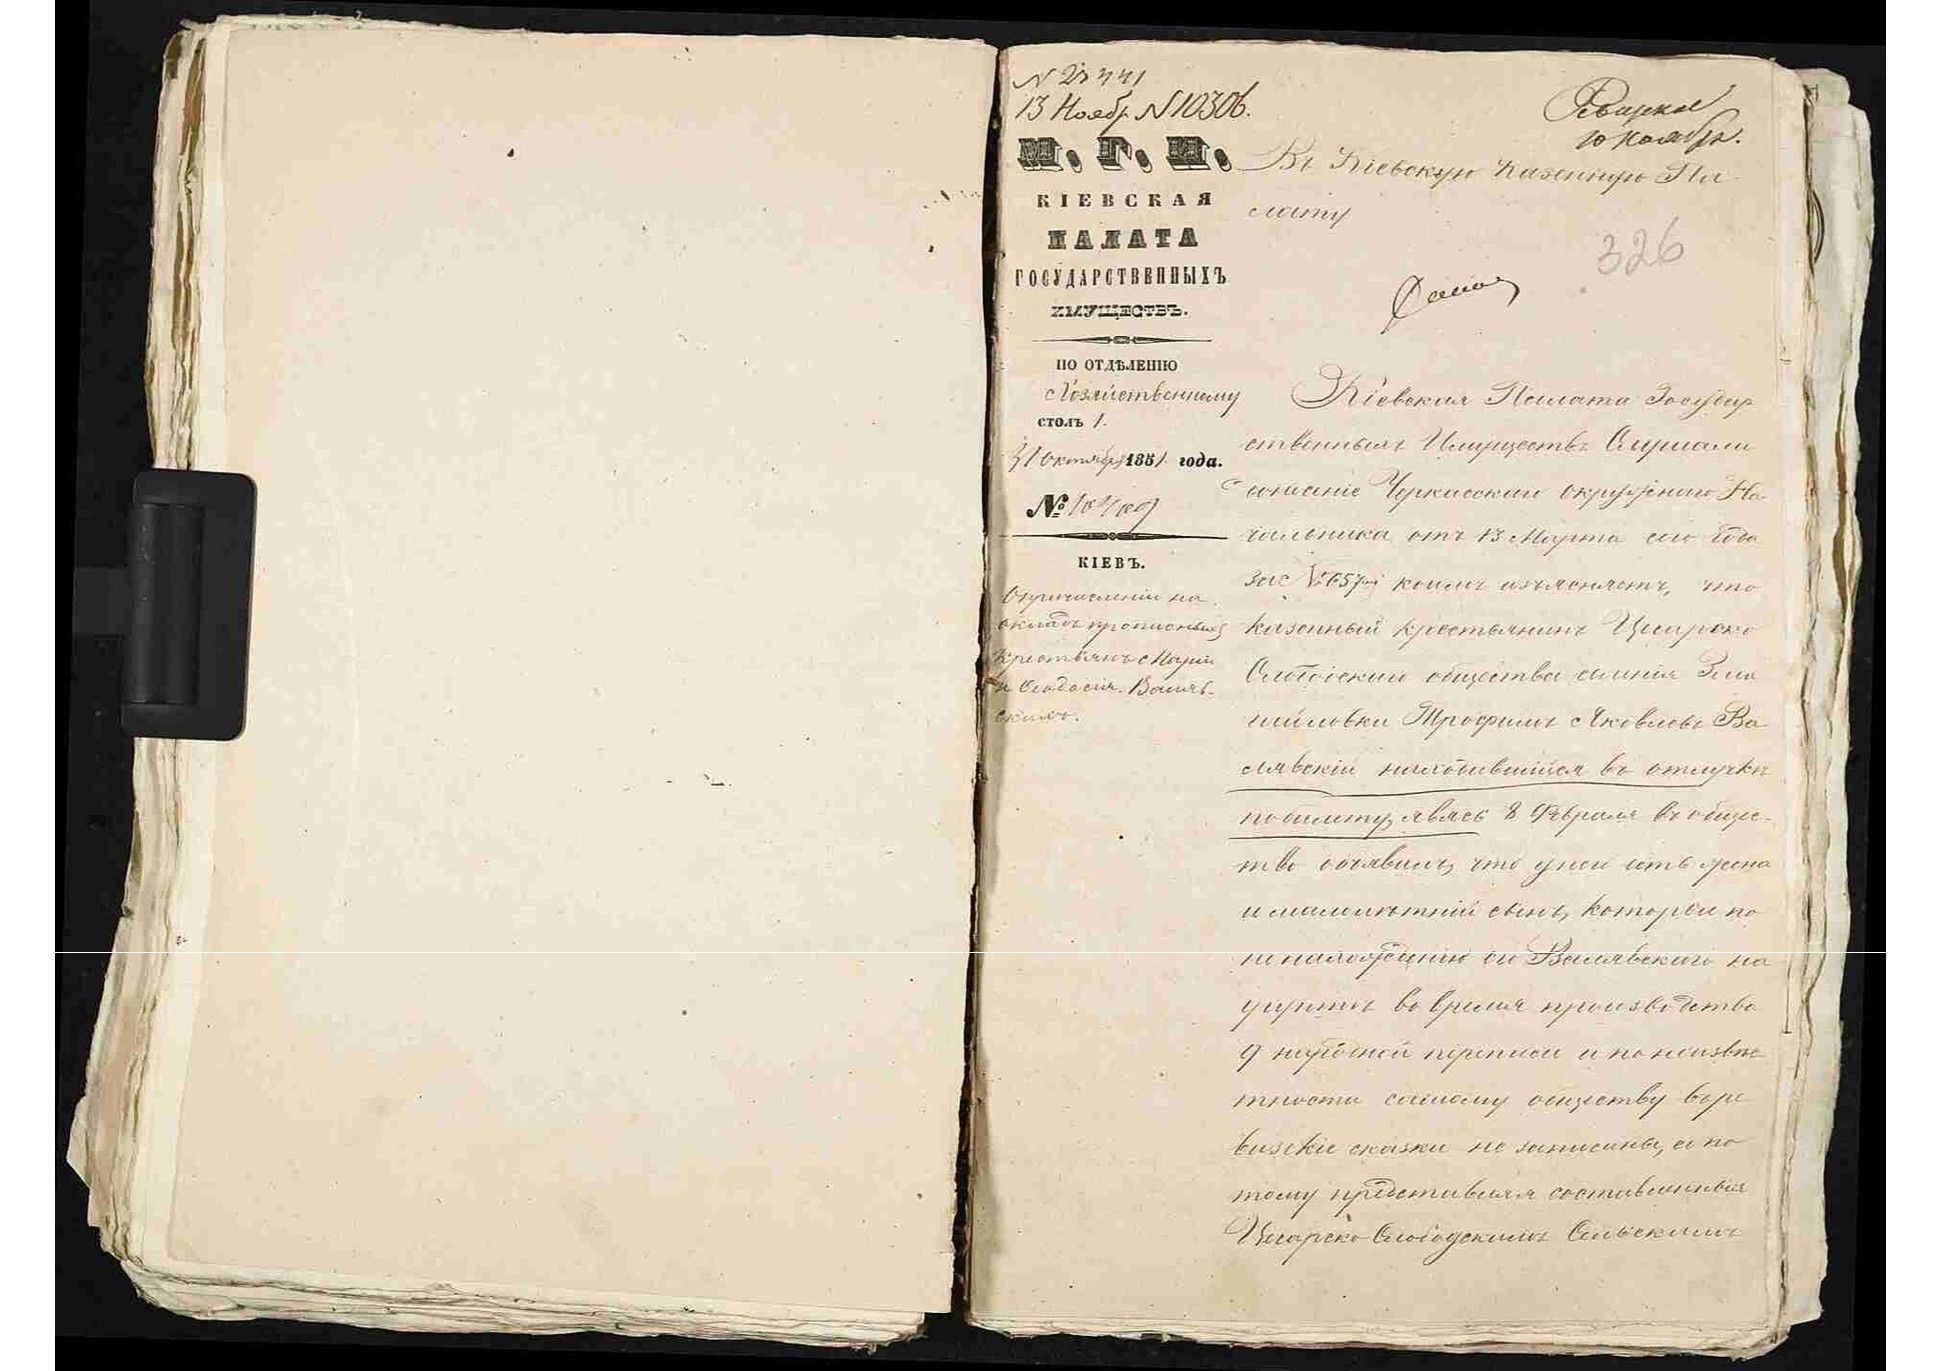 13 Ноябр. N 10306.
10 Ноябр.
М. Г. И.
КІЕВСКАЯ
ПАЛАТА
ГОСУДАРСТВЕННЫХЪ
ИМУЩЕСТВЪ.
ПО ОТДѢЛЕНІЮ
Хозяйственному
СТОЛЪ 1.
31 Октября 1851 года.
№
КІЕВЪ.
О причисленіи на
окладъ прописныхъ
крестьянъ Маріи
и Ѳеодосія Валяв-
скихъ.
Въ Кіевскую Казенную Па-
лату
326
Кіевская Палата Государ
ственныхъ Имуществъ Слушали
Черкасскаго окружнаго На-
чальника отъ 13 Марта сего года
за № 657 коимъ изъясняетъ, что
казенный крестьянинъ Цесарско
Слободскаго общества селенія Зма
гайловки Трофимъ Яковлевъ Ва
лявскій находившійся въ отлучкѣ
по билету, явясь 8 Февраля въ обще-
тво объявилъ, что у ней есть жена
и малолѣтній сынъ, которыи по
ненахожденію его Валявскаго на
во время производства
9 народной переписи и по неизвѣс
тности самому обществу въ ре
визскіе сказки не записаны, а по
тому представляя составленныя
Цесарско-Слободскимъ Сельскимъ